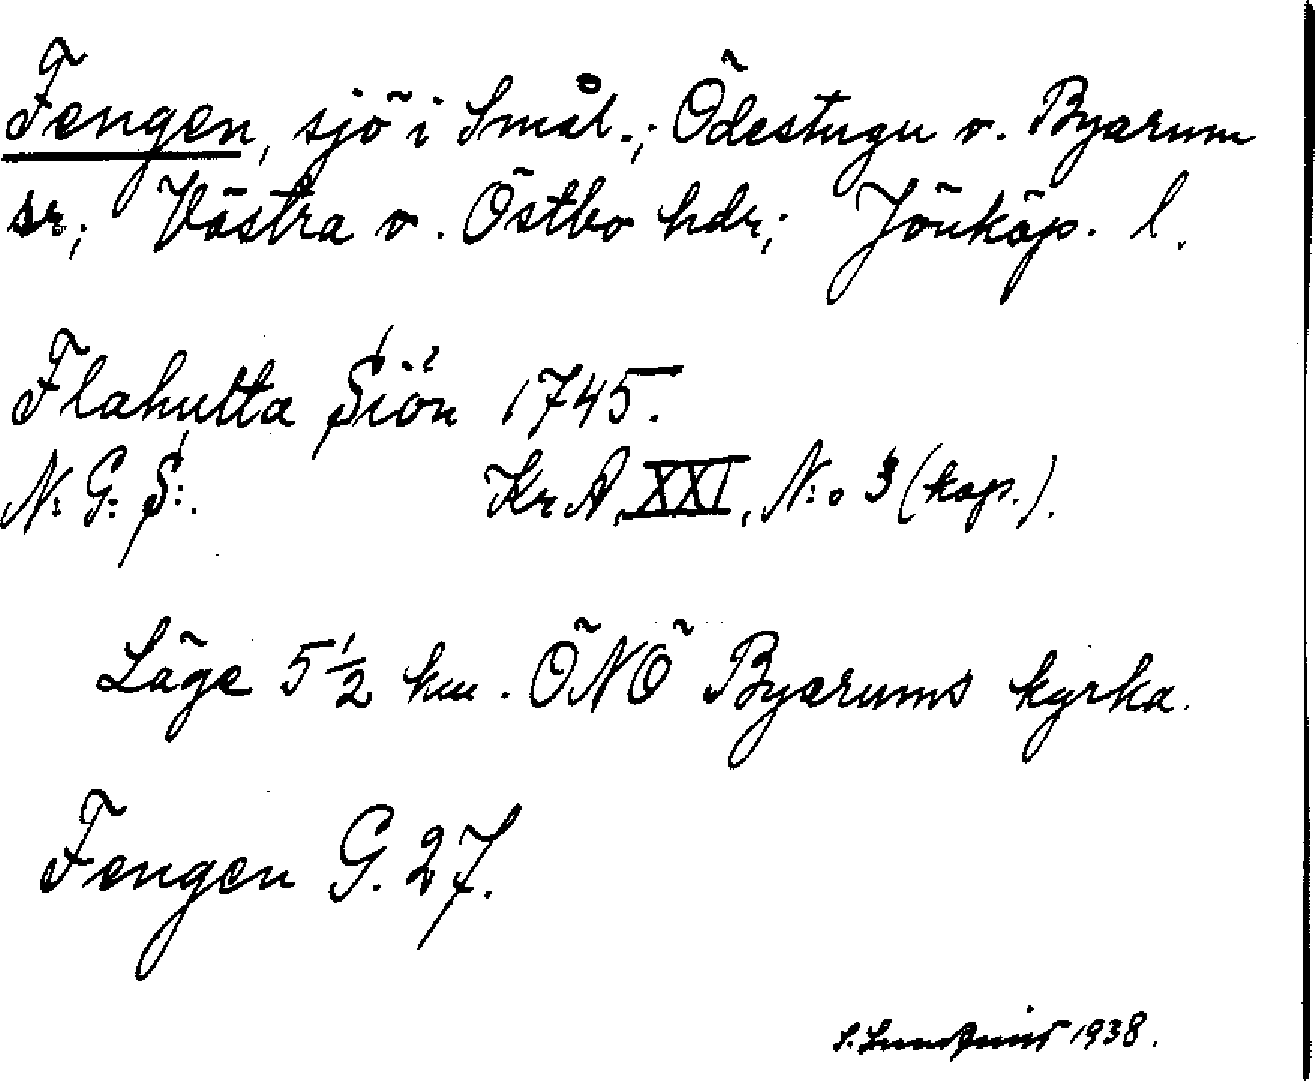 Fengen, sjö i Smål.; Ödestugu o. Byarum
sr; Västra o. Östbo hdr; Jönköp. l.
Flahutta Siön 1745.
N: G: S:. Kr A, XXI, N:o 3 (kop.).
Läge 5 1/2 km. ÖNÖ Byarums kyrka.
Fengen G. 27.
S. Lundquist 1938.